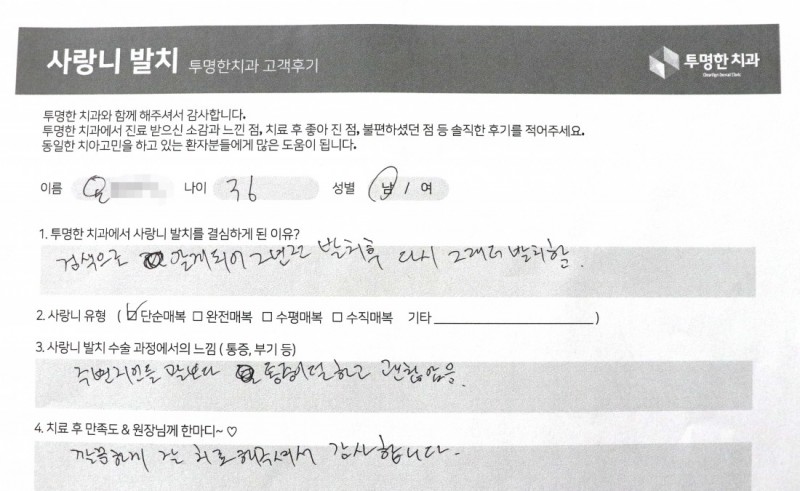 사랑니 발치 투명한치과 고객후기
투명한 치과
투명한 치과와 함께 해주셔서 감사합니다.
투명한 치과에서 진료 받으신 소감과 느낀 점, 치료 후 좋아 진 점, 불편하셨던 점 등 솔직한 후기를 적어주세요.
동일한 치아고민을 하고 있는 환자분들에게 많은 도움이 됩니다.
이름 나이 36 성별 남 / 여
1. 투명한 치과에서 사랑니 발치를 결심하게 된 이유?
검색으로 알게되어 2년전 발치후 다시 발치함.
2. 사랑니 유형 ( ☑ 단순매복 ☐ 완전매복 ☐ 수평매복 ☐ 수직매복 기타 )
3. 사랑니 발치 수술 과정에서의 느낌 ( 통증, 부기 등)
주변지인들 말보다 통증이 덜하고 괜찮았음.
4. 치료 후 만족도 & 원장님께 한마디~ ♡
깔끔하게 치료해주셔서 감사합니다.